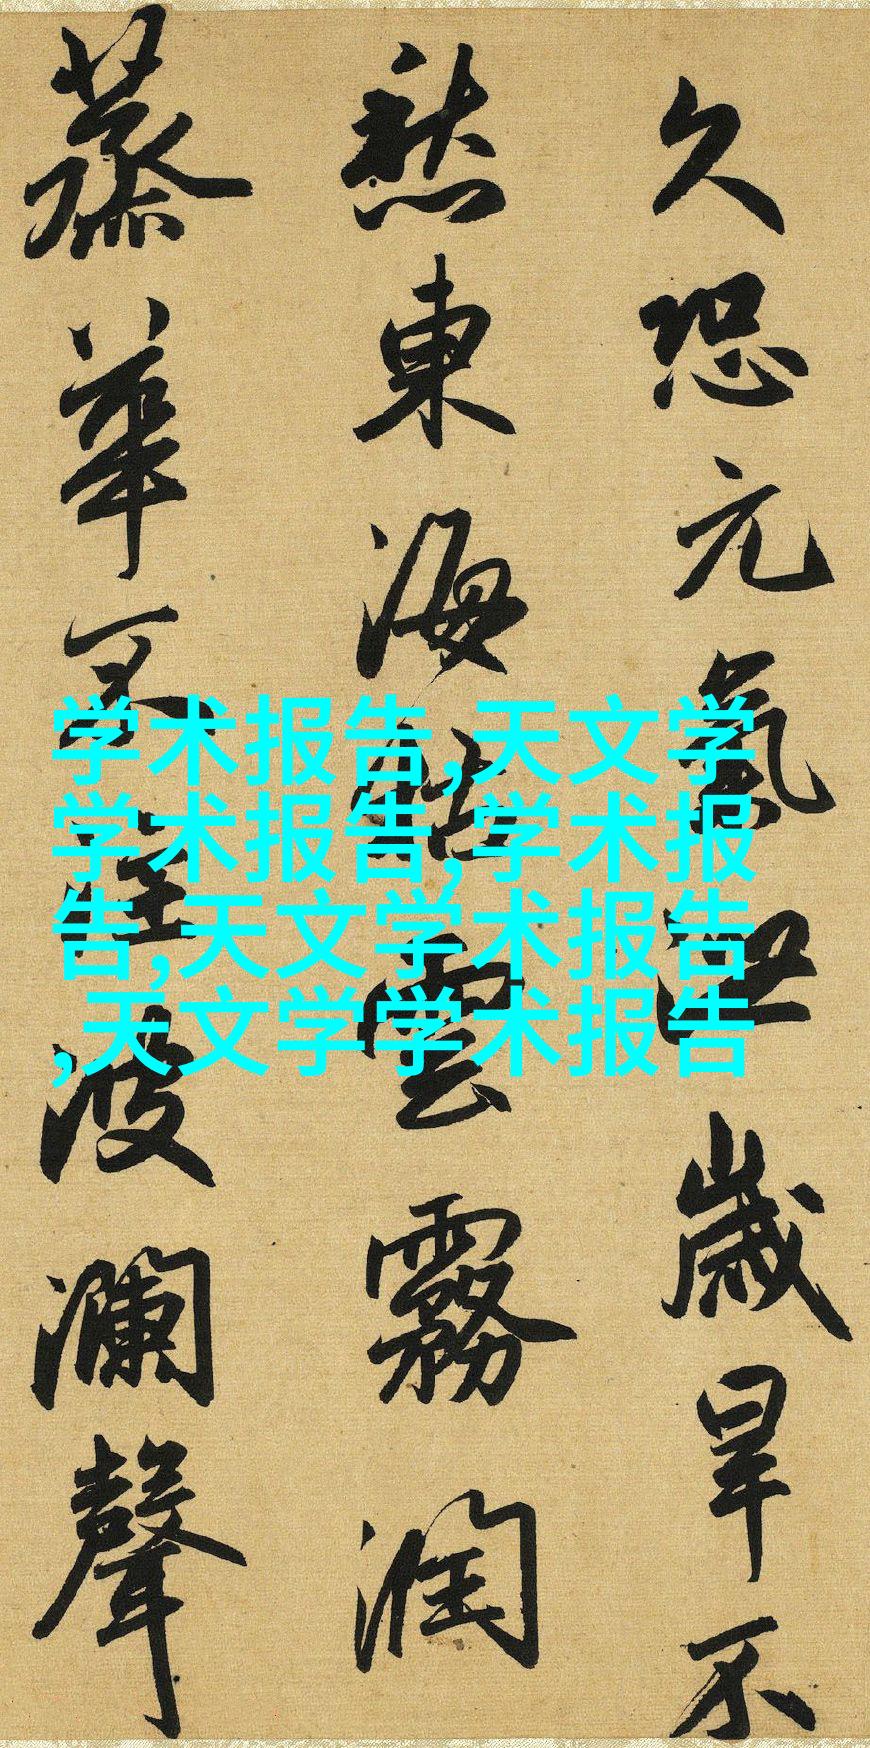 久恐元氣泄歲旱不
愁東海枯雲霧潤
蒸華不注波瀾聲
学术报告,天文学
学术报告,学术报
告,天文学术报告
,天文学学术报告